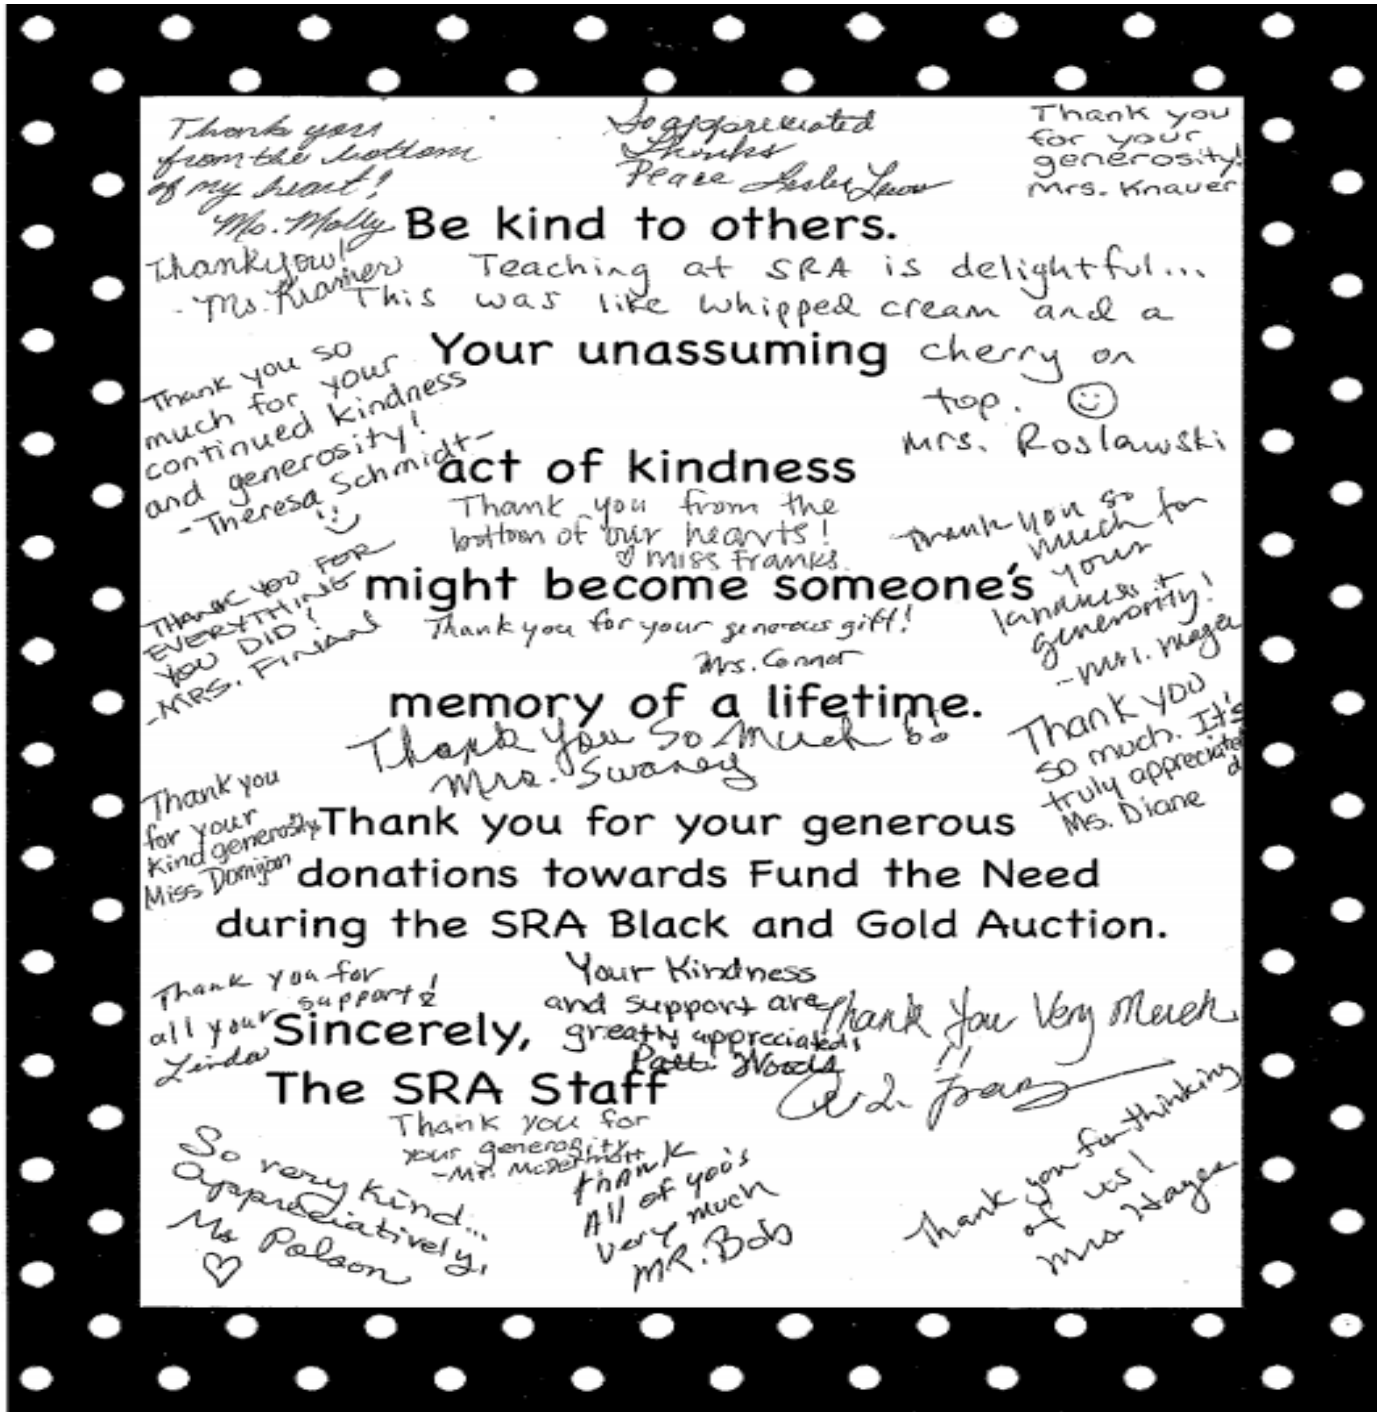 Thank you
from the bottom
of my heart!
Ms. Molly
So appreciated
Thanks
Peace Lesley
Thank you
for your
generosity!
Mrs. Knauer
Be kind to others.
Thankyou!
- Ms. Kramer
Teaching at SRA is delightful...
This was like whipped cream and a
cherry on
top. ☺
Mrs. Roslawski
Your unassuming
Thank you so
much for your
continued kindness
and generosity!
- Theresa Schmidt-
act of kindness
Thank you from the
bottom of our hearts!
♡ Miss Franks.
Thank you so
much for
your
kindness +
generosity!
- Mrs. Mager
might become someone's
THANK YOU FOR
EVERYTHING
YOU DID!
-MRS. FINIAN
Thank you for your generous gift!
Mrs. Connor
memory of a lifetime.
Thank You So Much!!
Mrs. Swaney
Thank you
so much. It's
truly appreciated
Ms. Diane
Thank you
for your
kind generosity
Miss Domijan
Thank you for your generous
donations towards Fund the Need
during the SRA Black and Gold Auction.
Thank you for
all your support!
Linda
Your Kindness
and support are
greatly appreciated!
Patti Woods
Thank You Very Much
!!
Sincerely,
The SRA Staff
Thank you for
your generosity
-Mr. McDermott
So very kind...
Appreciatively,
Ms Polson
♡
thank
All of yoo's
very much
MR. Bob
Thank you for thinking
of us!
Mrs. Hayes